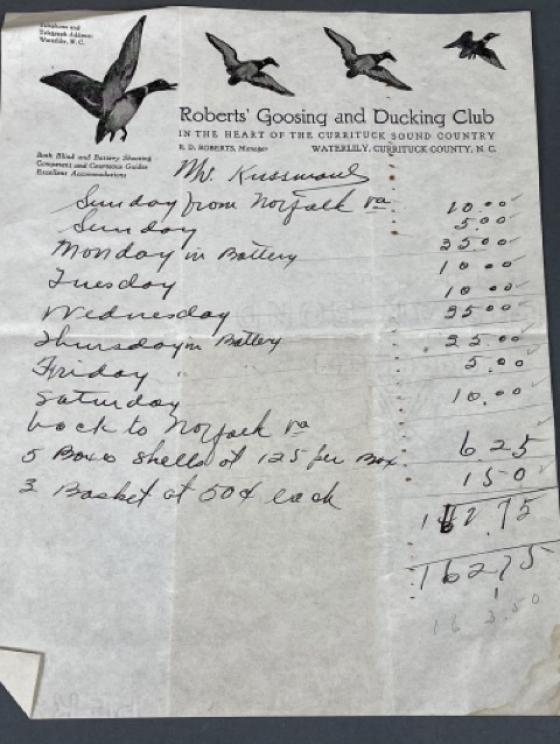 Telephone and
Telegraph Address:
Waterlily, N. C.
Roberts' Goosing and Ducking Club
IN THE HEART OF THE CURRITUCK SOUND COUNTRY
R. D. ROBERTS, Manager WATERLILY, CURRITUCK COUNTY, N. C.
Both Blind and Battery Shooting
Competent and Courteous Guides
Excellent Accommodations
Mr. Kussmaul
Sunday from Norfolk va 10.00
Sunday 5.00
Monday in Battery 35.00
Tuesday 10.00
Wednesday 10.00
Thursday in Battery 35.00
Friday " 35.00
Saturday 5.00
back to Norfolk va 10.00
5 Boxs shells at 125 per Box. 6.25
3 Basket at 50¢ each 150
162.75
162,75